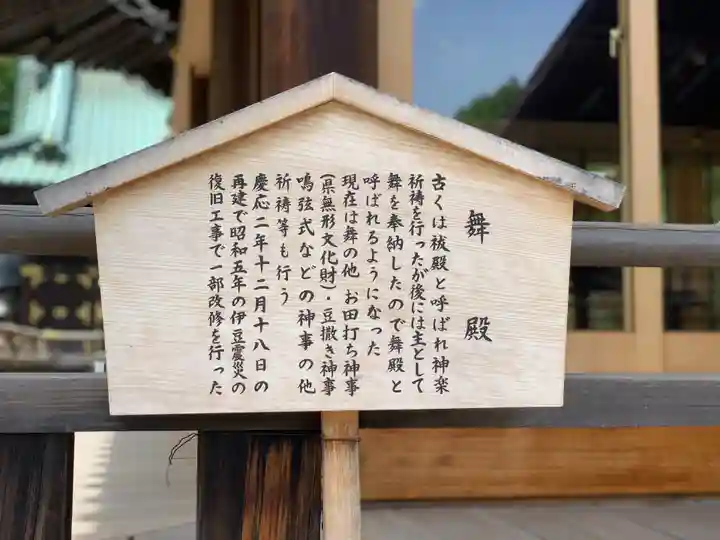 舞殿
古くは祓殿と呼ばれ神楽
祈祷を行ったが後には主として
舞を奉納したので舞殿と
呼ばれるようになった
現在は舞の他 お田打ち神事
(県無形文化財)・豆撒き神事
鳴弦式などの神事の他
祈祷等も行う
慶応二年十二月十八日の
再建で昭和五年の伊豆震災の
復旧工事で一部改修を行った